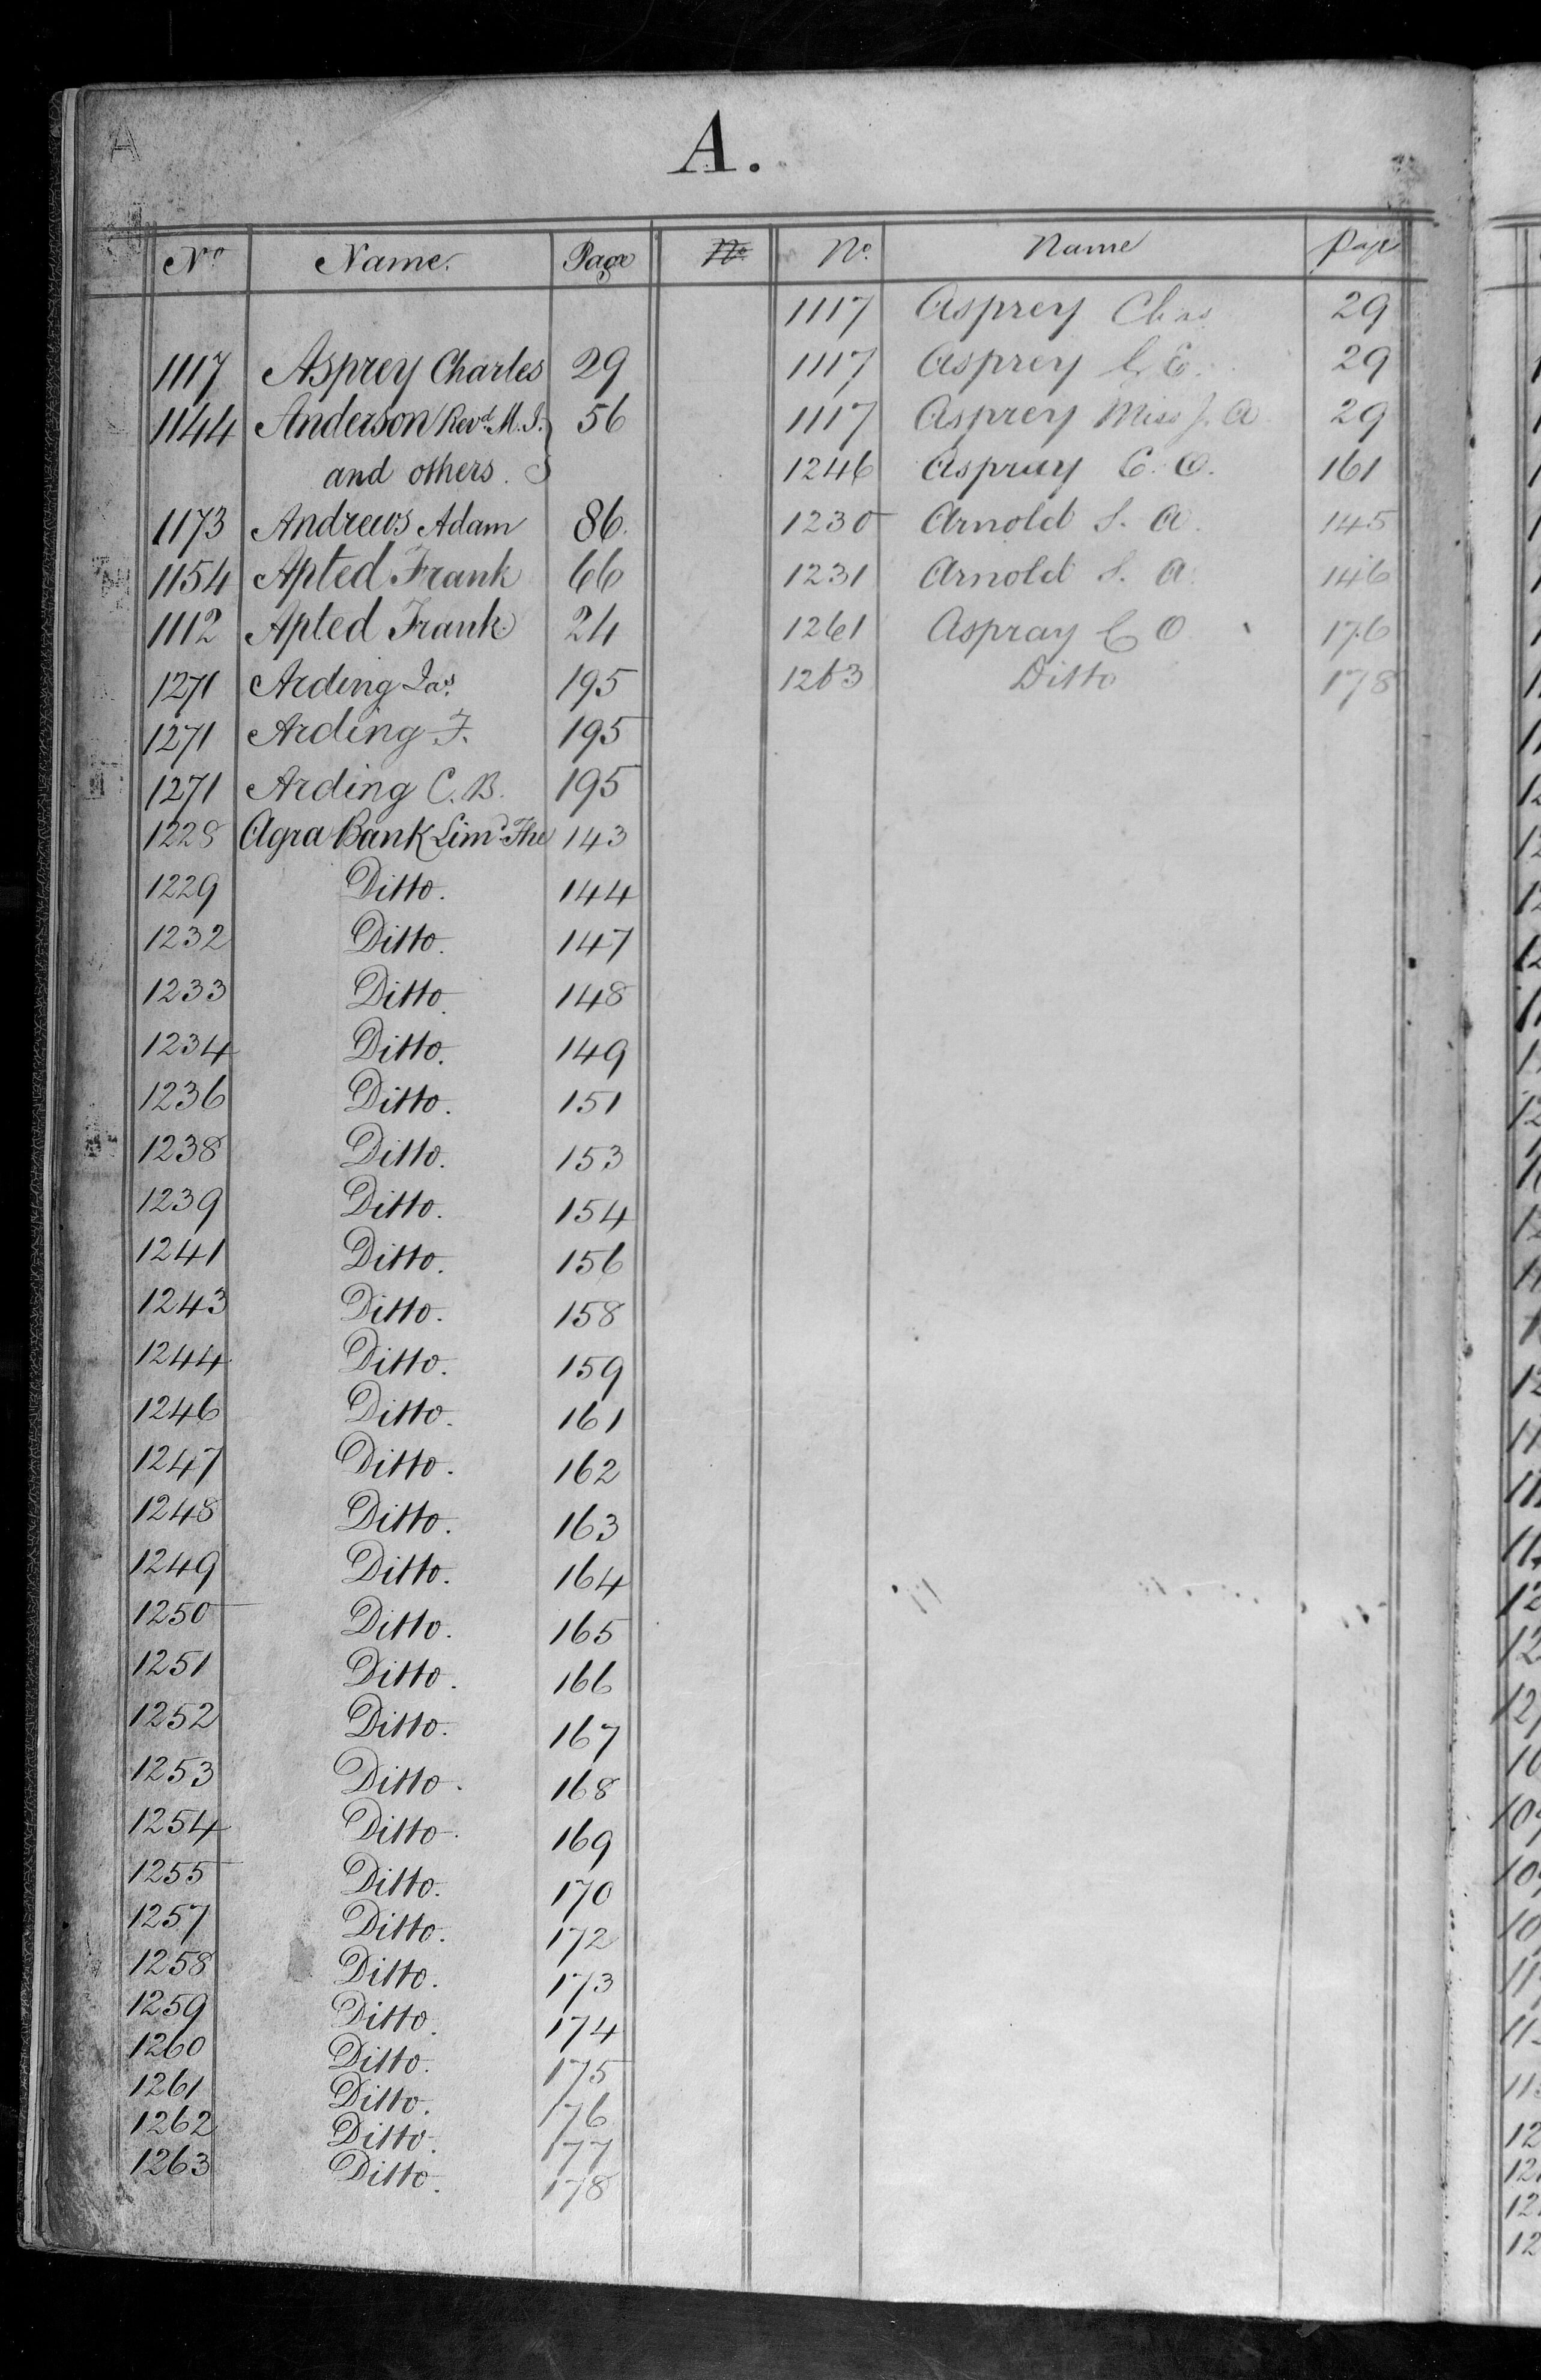 A
A.
No Name. Page
1117 Asprey Charles 29
1144 Anderson Revd. M. J. 56
and others.
1173 Andrews Adam 86.
1154 Apted Frank 66
1112 Apted Frank 24
1271 Arding Jas. 195
1271 Arding F. 195
1271 Arding C. B. 195
1228 Agra Bank Limd. The 143
1229 Ditto. 144
1232 Ditto. 147
1233 Ditto. 148
1234 Ditto. 149
1236 Ditto. 151
1238 Ditto. 153
1239 Ditto. 154
1241 Ditto. 156
1243 Ditto. 158
1244 Ditto. 159
1246 Ditto. 161
1247 Ditto. 162
1248 Ditto. 163
1249 Ditto. 164
1250 Ditto. 165
1251 Ditto. 166
1252 Ditto. 167
1253 Ditto. 168
1254 Ditto. 169
1255 Ditto. 170
1257 Ditto. 172
1258 Ditto. 173
1259 Ditto. 174
1260 Ditto. 175
1261 Ditto. 176
1262 Ditto. 177
1263 Ditto. 178
No No. Name Page
1117 Asprey Chas 29
1117 Asprey C. E. 29
1117 Asprey Miss J. A. 29
1246 Aspray C. O. 161
1230 Arnold S. A. 145
1231 Arnold S. A. 146
1261 Aspray C O 176
1263 Ditto 178